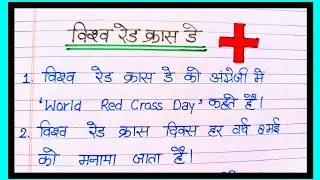 विश्व रेड क्रास डे
1. विश्व रेड क्रास डे को अंग्रेजी में
'World Red Cross Day' कहते हैं।
2. विश्व रेड क्रास दिवस हर वर्ष 8 मई
को मनाया जाता है।